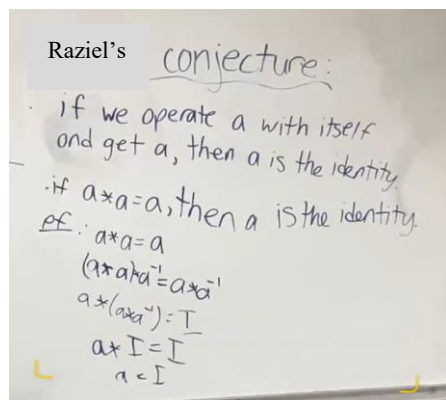 Raziel's conjecture:
if we operate a with itself
and get a, then a is the identity.
·if a*a=a, then a is the identity.
pf: a*a=a
(a*a)*a⁻¹=a*a⁻¹
a*(a*a⁻¹)=I
a* I=I
a=I